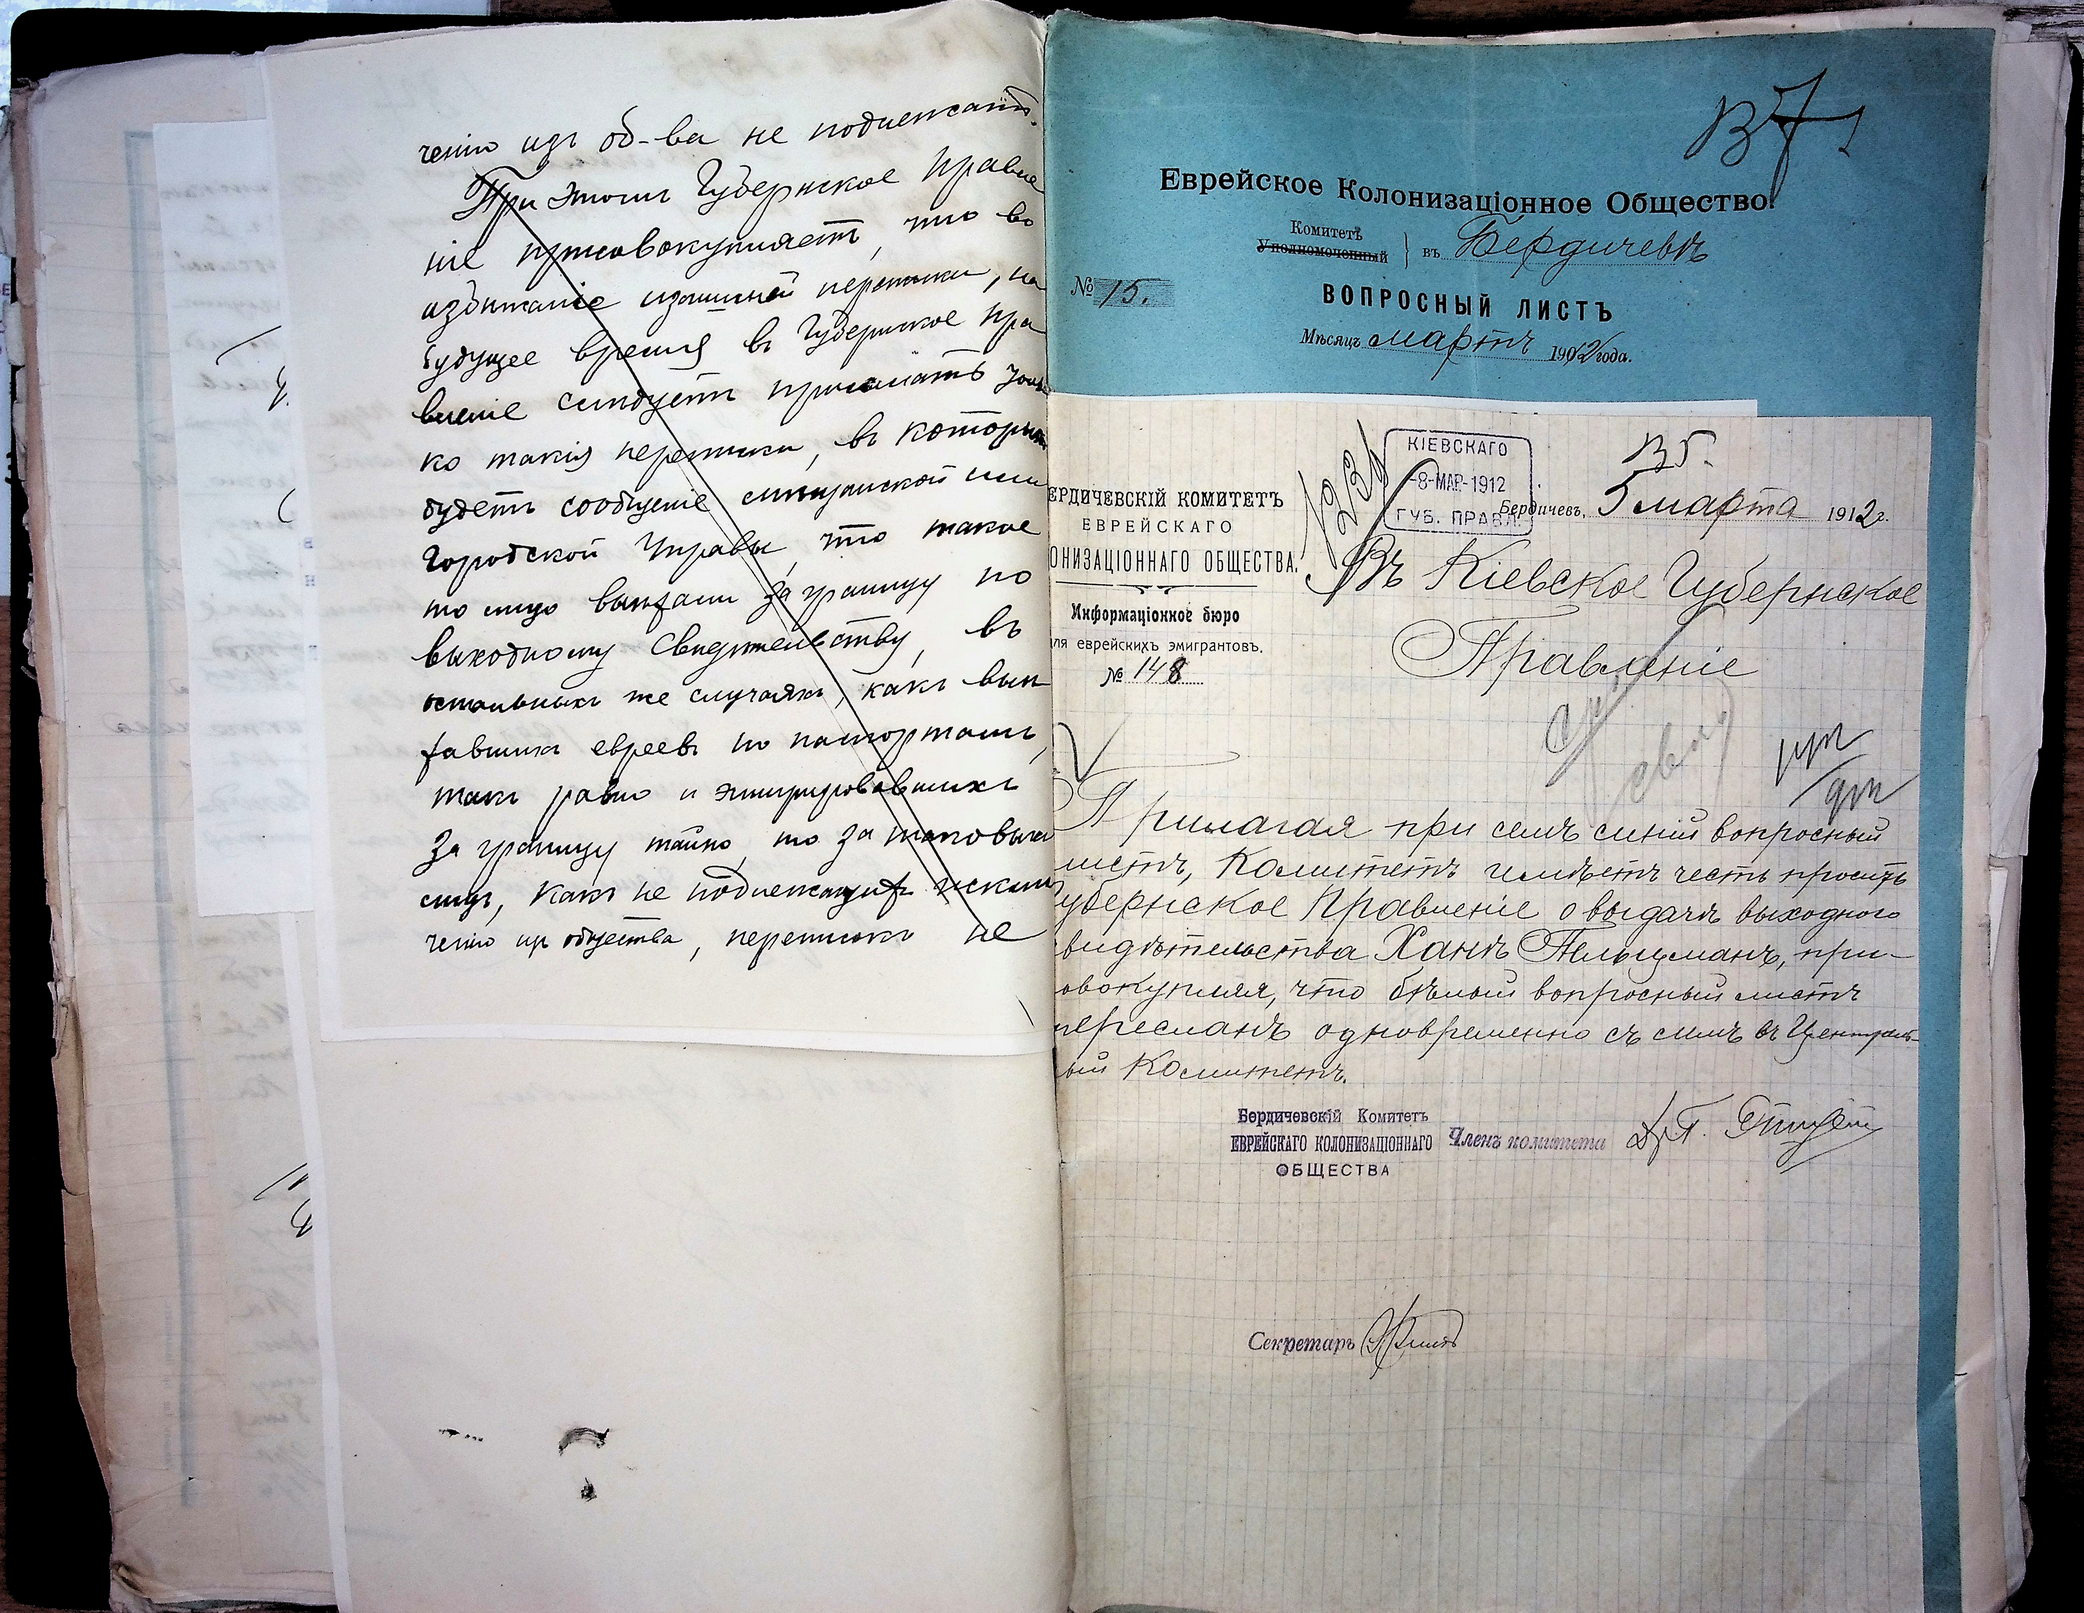 ченію изъ об-ва не подлежатъ.
При этомъ Губернское Правле
ніе присовокупляетъ, что во
избѣжаніе излишней переписки, на
будущее время въ Губернское Пра
вленіе слѣдуетъ присылать толь
ко такія переписки, въ которыхъ
будетъ сообщеніе мѣщанской или
Городской Управы, что такое
то лицо выѣхали за границу по
выходному свидѣтельству, въ
остальныхъ же случаяхъ, какъ выѣ
хавшихъ евреевъ по паспортамъ,
такъ равно и эмигрировавшихъ
за границу тайно, то за таковыхъ
лицъ, какъ не подлежащихъ исклю
ченію изъ общества, переписки не
В 7
Еврейское Колонизаціонное Общество.
Комитетъ
Уполномоченный } въ Бердичевѣ
№ 15.
ВОПРОСНЫЙ ЛИСТЪ
Мѣсяцъ мартъ 1912 года.
КІЕВСКАГО
8-МАР-1912
ГУБ. ПРАВЛ.
В 5.
ЕРДИЧЕВСКІЙ КОМИТЕТЪ
ЕВРЕЙСКАГО
ОНИЗАЦІОННАГО ОБЩЕСТВА.
Информаціонное бюро
ля еврейскихъ эмигрантовъ.
№ 148
Бердичевъ, 5 марта 1912 г.
Въ Кіевское Губернское
Правленіе
Прилагая при семъ синій вопросный
листъ, Комитетъ имѣетъ честь просить
убернское Правленіе о выдачѣ выходного
видѣтельства Ханѣ Пельцманъ, при-
овокупляя, что бѣлый вопросный листъ
пересланъ одновременно съ симъ въ Централь-
ый Комитетъ.
Бердичевскій Комитетъ
ЕВРЕЙСКАГО КОЛОНИЗАЦІОННАГО
ОБЩЕСТВА
Членъ комитета
Секретарь